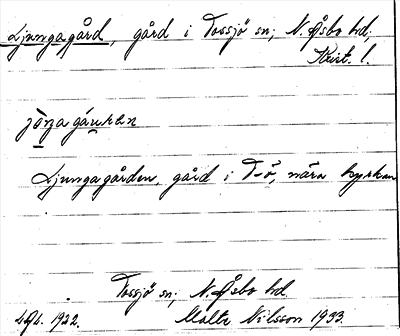 Ljungagård, gård i Tossjö sn; N. Åsbo hd,
Krist. l.
jöŋa gáɯ̯hen
Ljungagården, gård i T-ö, nära kyrkan
Tossjö sn; N. Åsbo hd.
1922. Malte Nilsson 1933.